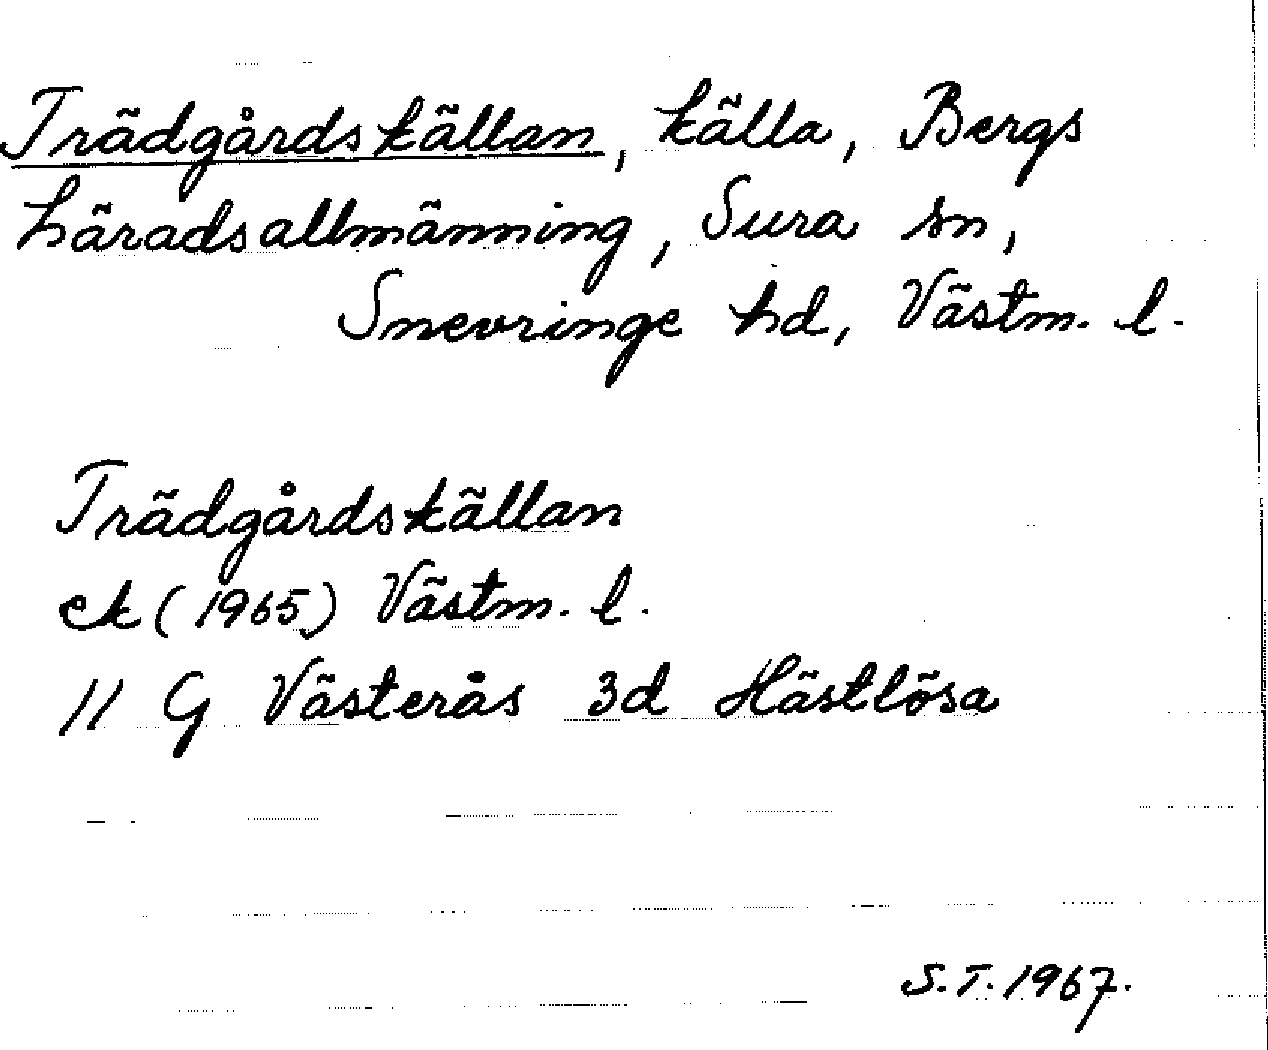 Trädgårdskällan, källa, Bergs
häradsallmänning, Sura sn,
Snevringe hd, Västm. l.
Trädgårdskällan
ek (1965) Västm. l.
11 G Västerås 3d Hästlösa
S.T. 1967.